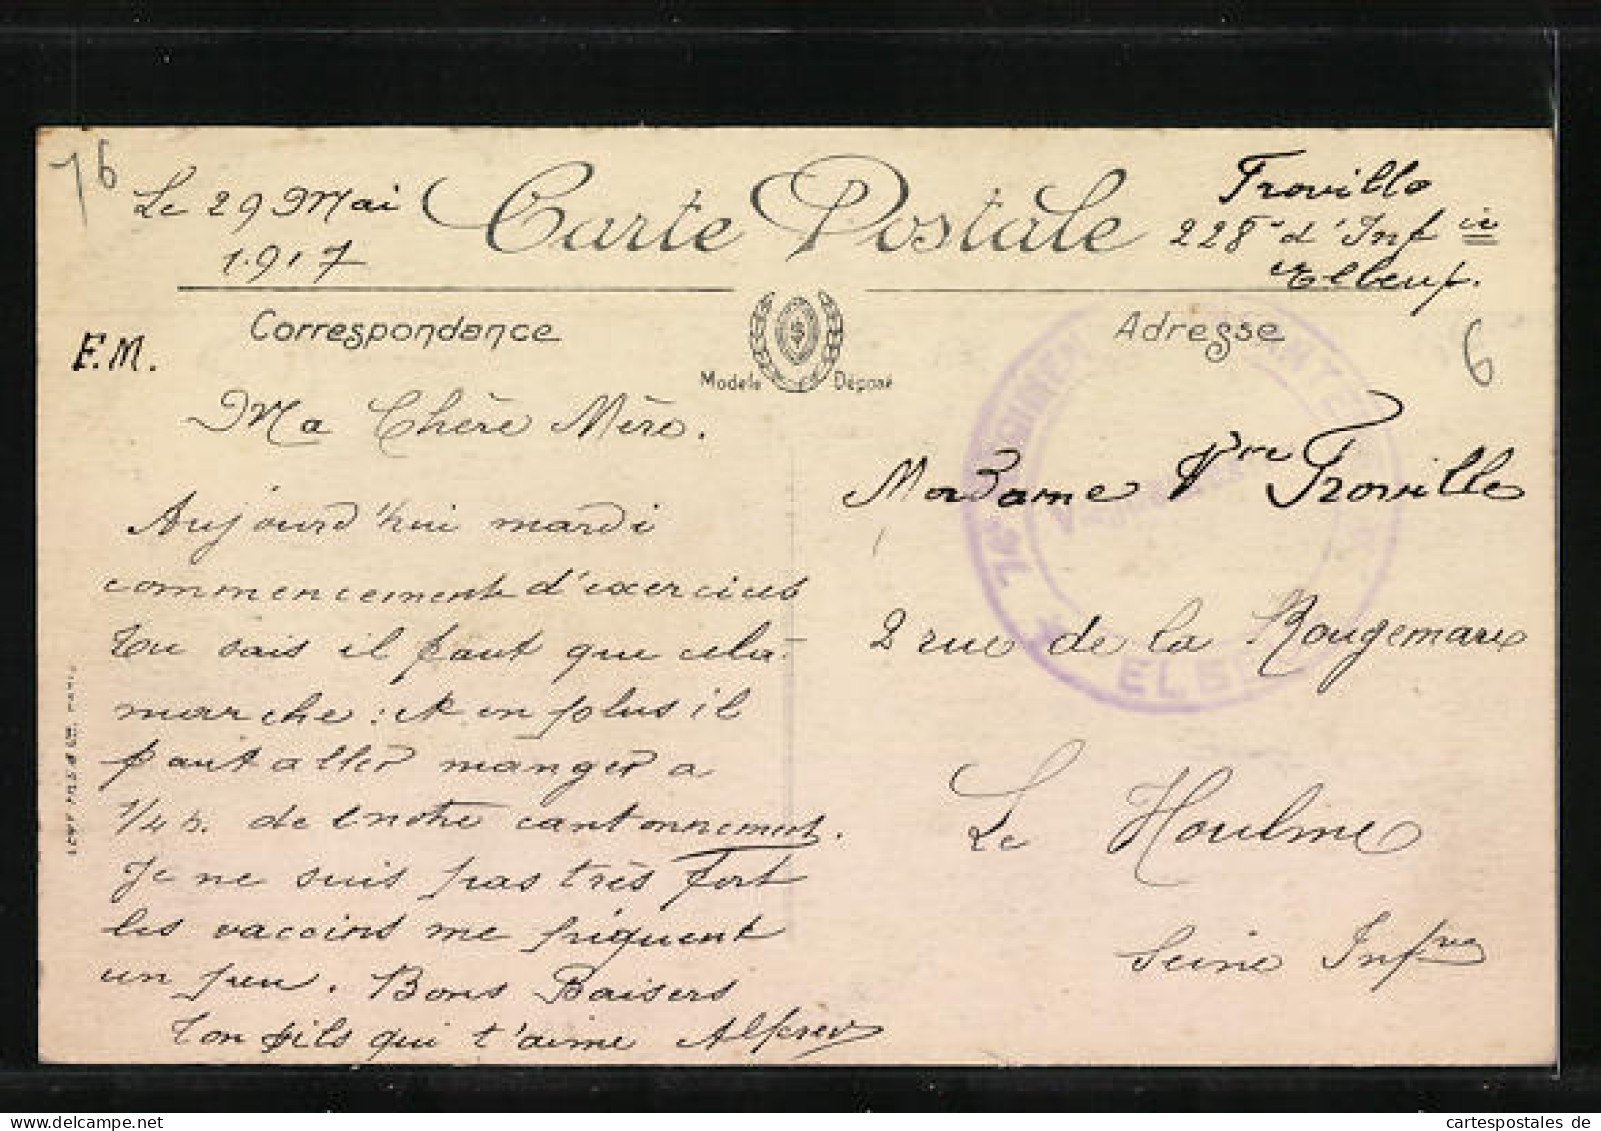 76
Le 29 Mai
1917
Carte Postale
Troville
228e d'Infie
Elbeuf.
F.M.
Correspondance
Modèle Déposé
Adresse
6
Ma Chère Mère.
Aujourd'hui mardi
commencement d'exercices
Tu sais il faut que cela
marche : et en plus il
faut aller manger a
1/4 h. de notre cantonnement.
Je ne suis pas très fort
les vaccins me fiquent
un peu. Bons Baisers
Ton fils qui t'aime Alfred
Madame Vve Troville
2 rue de la Rougemare
Le Houlme
Seine Infre
74e REGIMENT TERRITORIAL
ELBEUF
LEVY FILS & Cie PARIS
cartespostales de